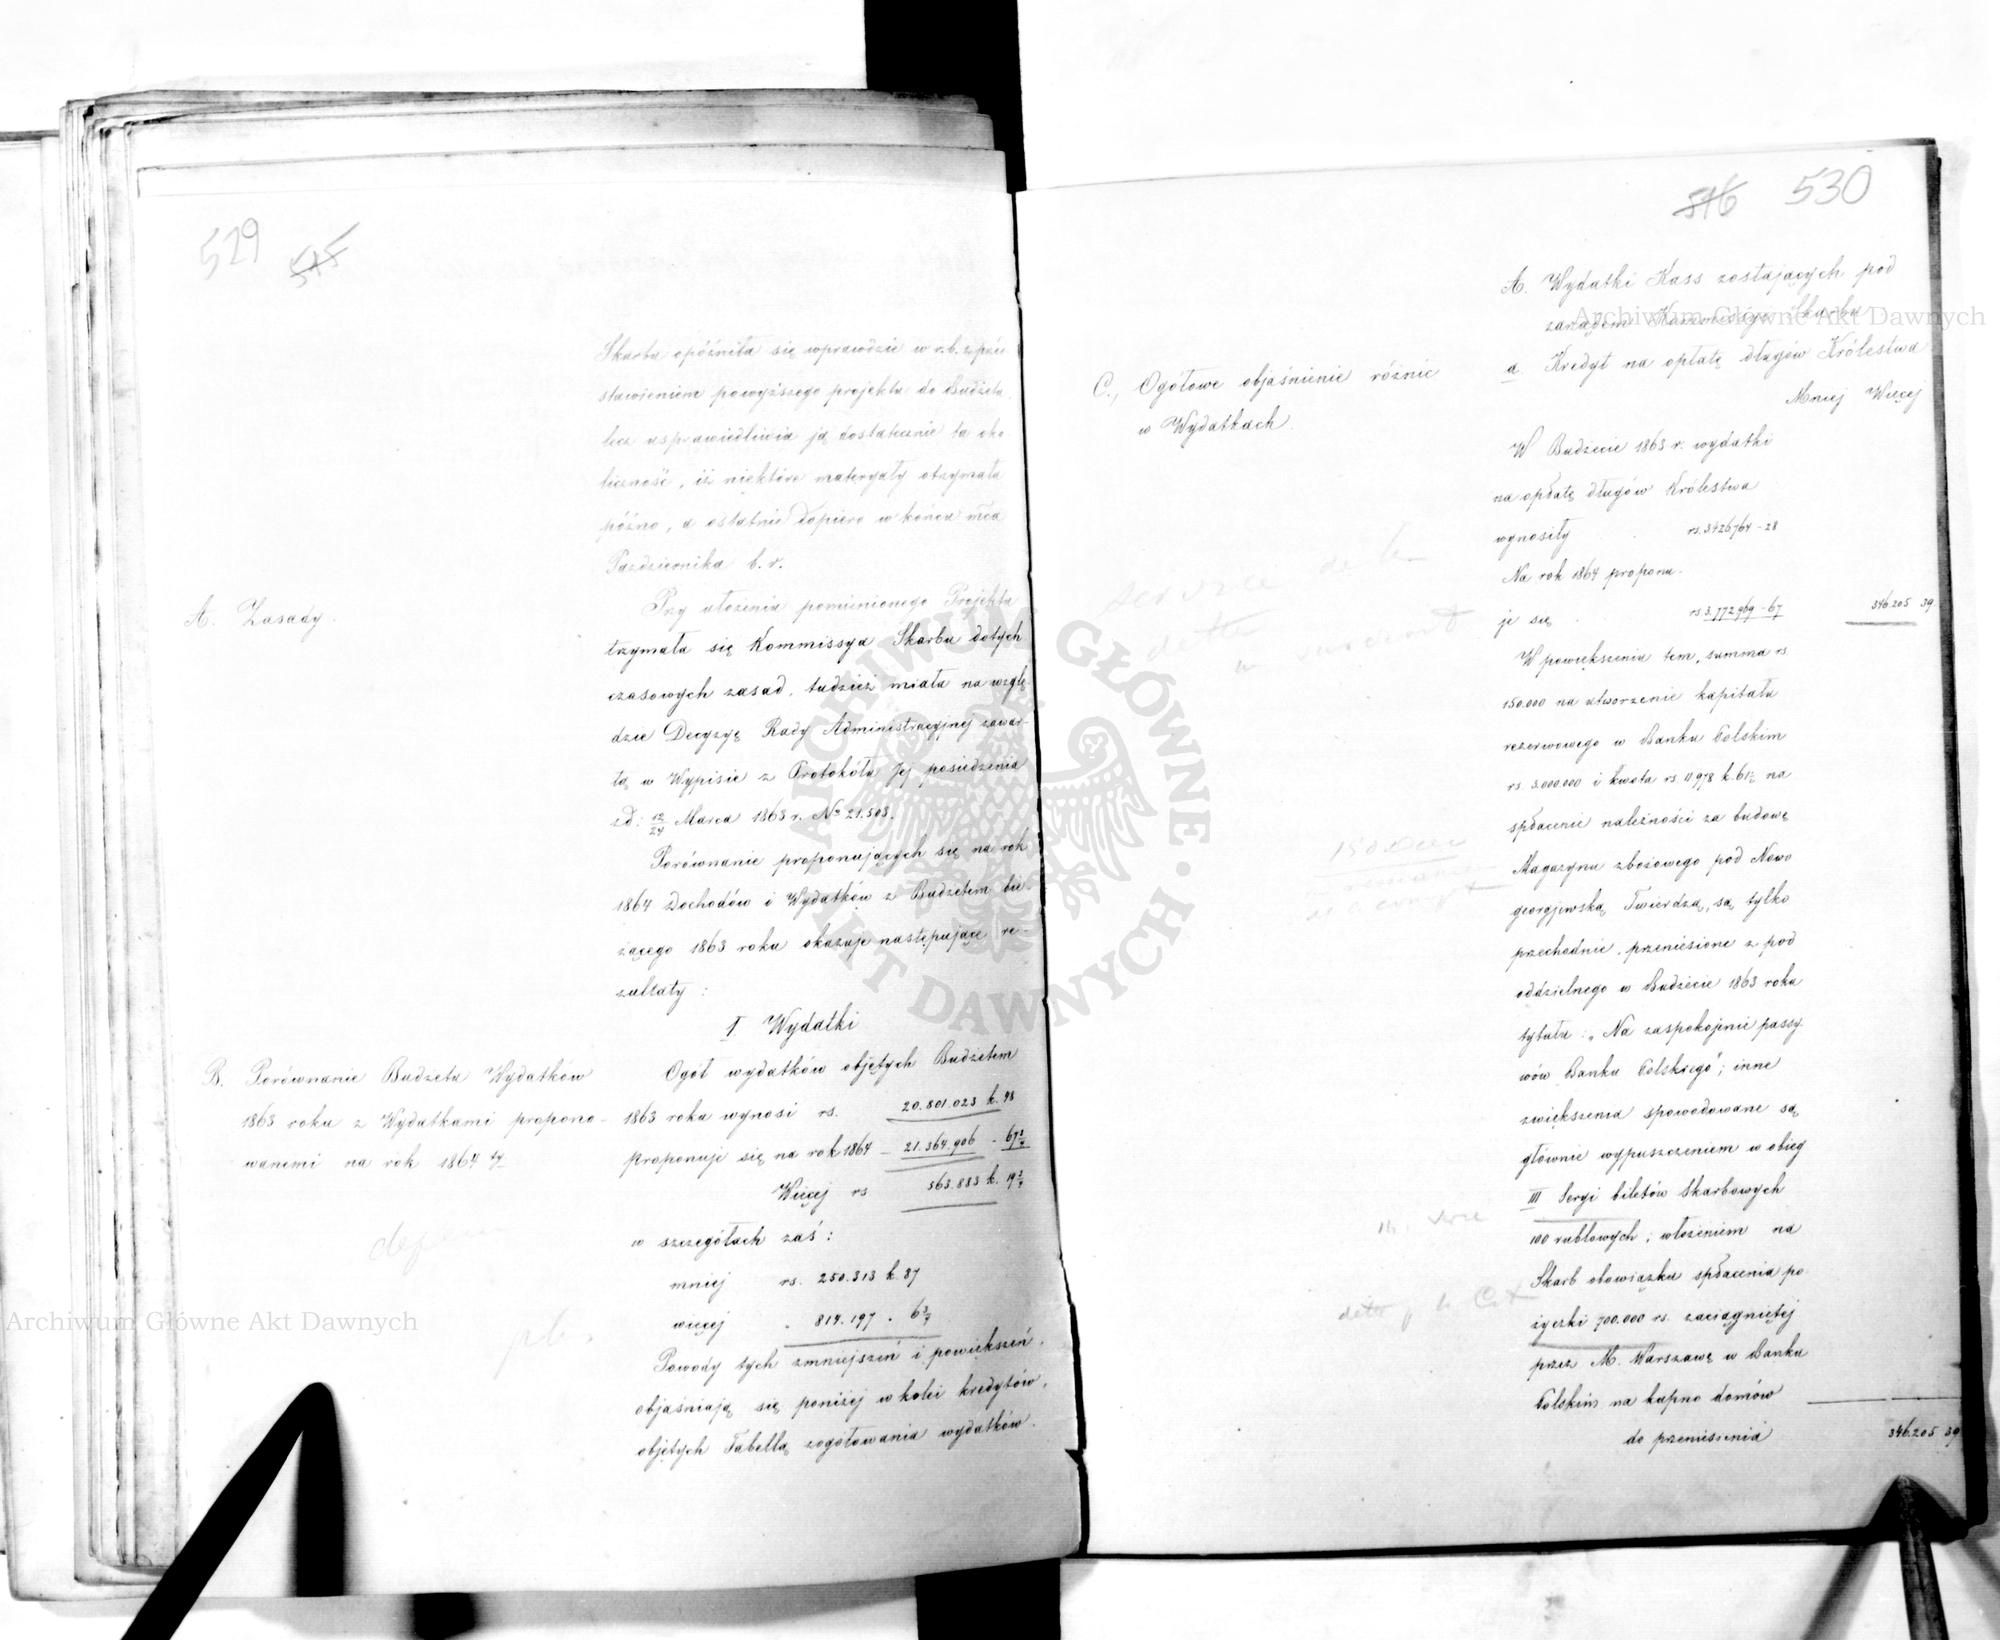 529 515
Skarbu opóźniła się wprawdzie w r.b. z przed
stawieniem powyższego projektu do Budżetu,
lecz usprawiedliwia ją dostatecznie ta oko
liczność, iż niektóre materyały otrzymała
późno, a ostatnie dopiero w końcu mca
Października b.r.
A. Zasady.
Przy ułożeniu pomienionego Projektu
trzymała się Kommissya Skarbu dotych
czasowych zasad, tudzież miała na wzglę-
dzie Decyzyę Rady Administracyjnej zawar-
tą w Wypisie z Protokółu Jej posiedzenia
z d: 12/24 Marca 1863 r. No 21.503.
Porównanie proponujących się na rok
1864 Dochodów i Wydatków z Budżetem bie-
żącego 1863 roku okazuje następujące re-
zultaty:
I Wydatki
B. Porównanie Budżetu Wydatków
1863 roku z Wydatkami propono-
wanemi na rok 1864 ty
Ogół wydatków objętych Budżetem
1863 roku wynosi rs. 20.801.023 k. 48
proponuje się na rok 1864 – 21.364.906 – 67 3/4
Więcej rs 563.883 k. 19 3/4
w szczegółach zaś:
mniej rs. 250.313 k. 87
więcej „ 814.197 „ 6 3/4
Powody tych zmniejszeń i powiększeń,
objaśniają się poniżej w kolei kredytów,
objętych Tabellą zogółowania wydatków.
516 530
C., Ogółowe objaśnienie różnic
w Wydatkach.
A. Wydatki Kass zostających pod
zarządem Kommissyi Skarbu
a. Kredyt na opłatę długów Królestwa
Mniej Więcej
W Budżecie 1863 r. wydatki
na opłatę długów Królestwa
wynosiły rs. 3.426.764 – 28
Na rok 1864 proponu-
je się rs. 3.772.969 – 67 346.205 39
W powiększeniu tem, summa rs
150.000 na utworzenie kapitału
rezerwowego w Banku Polskim
rs. 3.000.000 i kwota rs 11.978 k. 61 1/2 na
spłacenie należności za budowę
Magazynu zbożowego pod Nowo
georgjewską Twierdzą, są tylko
przechodnie, przeniesione z pod
oddzielnego w Budżecie 1863 roku
tytułu: „Na zaspokojenie passy-
wów Banku Polskiego"; inne
zwiększenia spowodowane są
głównie wypuszczeniem w obieg
III Seryi biletów Skarbowych
100 rublowych; włożeniem na
Skarb obowiązku spłacenia po-
życzki 700.000 rs. zaciągniętej
przez M. Warszawę w Banku
Polskim na kupno domów
do przeniesienia 346.205 39
Archiwum Główne Akt Dawnych
Archiwum Główne Akt Dawnych
ARCHIWUM GŁÓWNE · AKT DAWNYCH ·